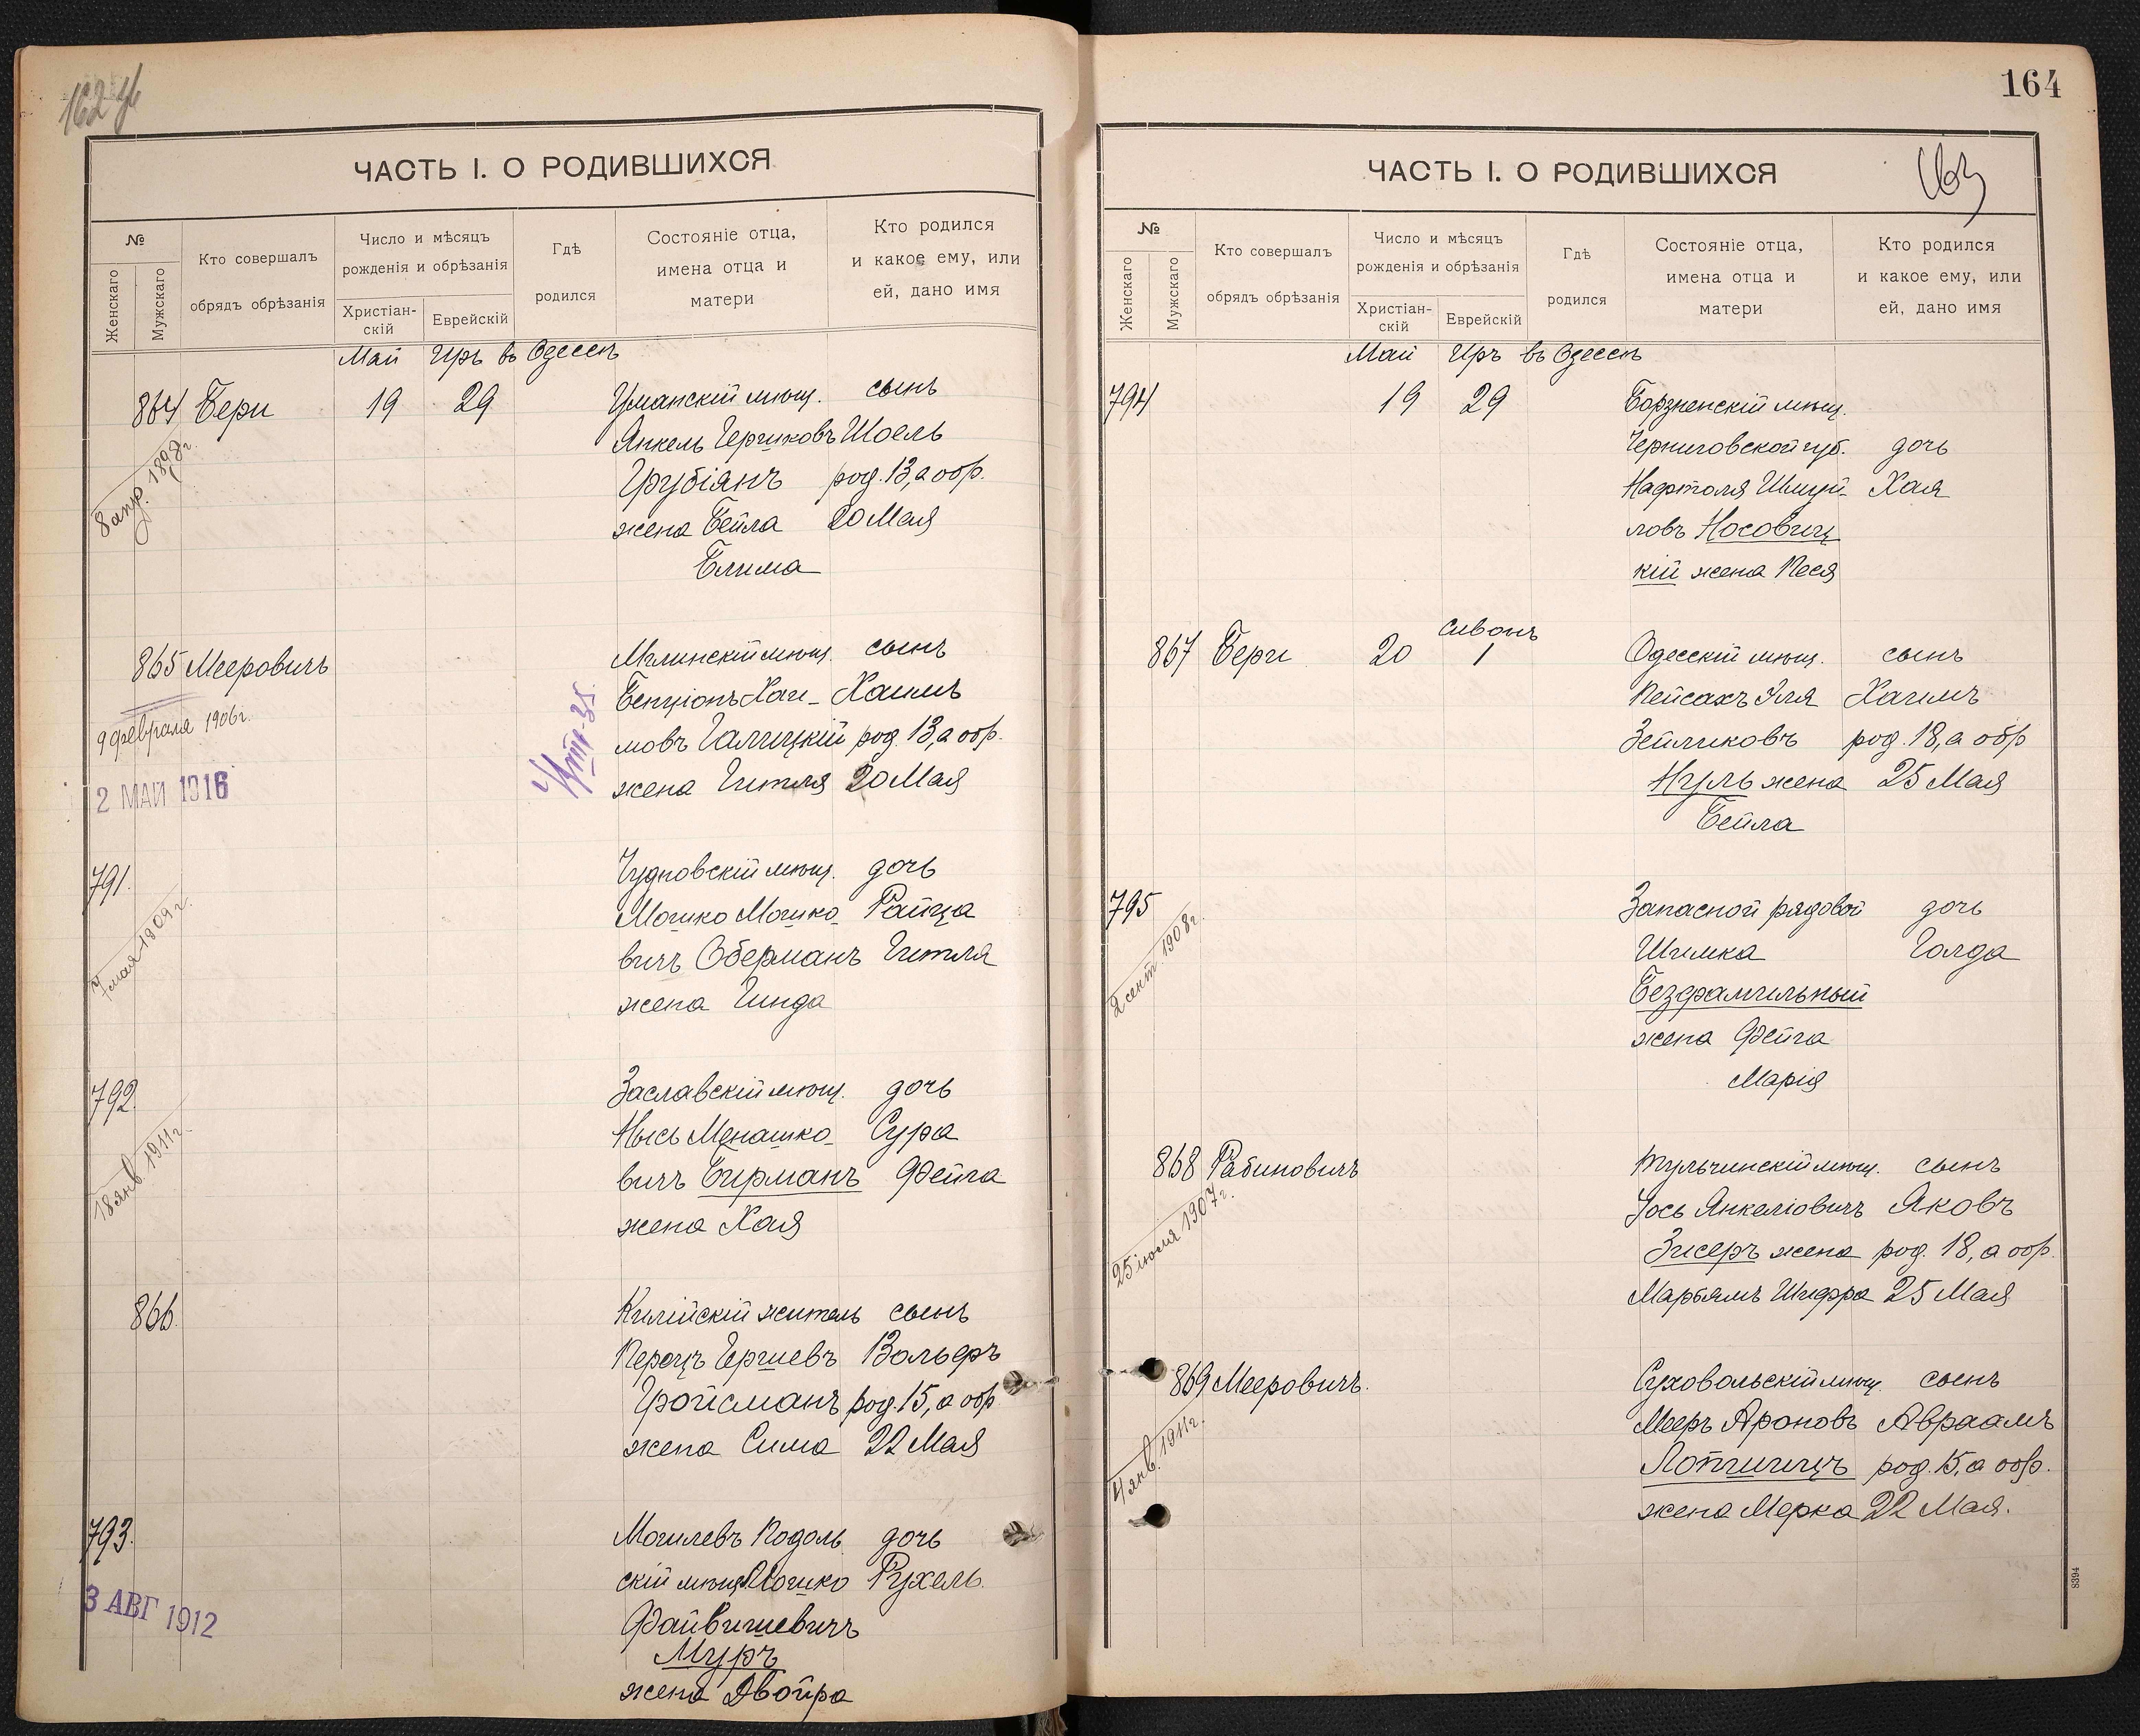 162
ЧАСТЬ I. О РОДИВШИХСЯ
№
Женскаго
Мужскаго
Кто совершалъ
обрядъ обрѣзанія
Число и мѣсяцъ
рожденія и обрѣзанія
Христіан-
скій
Еврейскій
Гдѣ
родился
Состояніе отца,
имена отца и
матери
Кто родился
и какое ему, или
ей, дано имя
Май Іиръ въ Одессѣ
864 Бери 19 29 Уманскій мѣщ. сынъ
Янкель Гершковъ Шоель
Грубіянъ род. 13, а обр.
жена Бейла 20 Мая
Блима
8 апр. 1898 г.
865 Мееровичъ Мглинскій мѣщ. сынъ
Бенціонъ Хаи- Хаимъ
мовъ Галицкій род. 13, а обр.
жена Гитля 20 Мая
9 февраля 1906 г.
2 МАЙ 1916
791. Чудновскій мѣщ. дочь
Мошко Мошко- Райца
вичъ Оберманъ Гитля
жена Гинда
7 мая 1909 г.
792. Заславскій мѣщ. дочь
Нысь Менашко- Сура
вичъ Бирманъ Фейга
жена Хая
18 янв. 1911 г.
866. Килійскій житель сынъ
Перецъ Гершевъ Вольфъ
Гройсманъ род. 15, а обр.
жена Сима 22 Мая
793. Могилевъ Подоль дочь
скій мѣщ. Мошко Рухель.
Файвишевичъ
Муръ
жена Двойра
3 АВГ 1912
164
ЧАСТЬ I. О РОДИВШИХСЯ
163
№
Женскаго
Мужскаго
Кто совершалъ
обрядъ обрѣзанія
Число и мѣсяцъ
рожденія и обрѣзанія
Христіан-
скій
Еврейскій
Гдѣ
родился
Состояніе отца,
имена отца и
матери
Кто родился
и какое ему, или
ей, дано имя
Май Іиръ въ Одессѣ
794 19 29 Борзненскій мѣщ.
Черниговской губ. дочь
Нафтоля Шмуй- Хая
ловъ Носовиц
кій жена Песя
Сивонъ
867 Бери 20 1 Одесскій мѣщ. сынъ
Пейсахъ Эля Хаимъ
Зейликовъ род. 18, а обр
Нуль жена 25 Мая
Бейла
795 Запасной рядовой дочь
Шимка Голда
Безфамильный
жена Фейга
Марія
2 сент. 1908 г.
868 Рабиновичъ Тульчинскій мѣщ. сынъ
Іось Янкеліовичъ Яковъ
Зисеръ жена род. 18, а обр.
Марьямъ Шифра 25 Мая
25 іюля 1907 г.
869 Мееровичъ. Суховольскій мѣщ. сынъ
Мееръ Ароновъ Авраамъ
род. 15, а обр.
жена Мерка 22 Мая.
4 янв. 1911 г.
8394